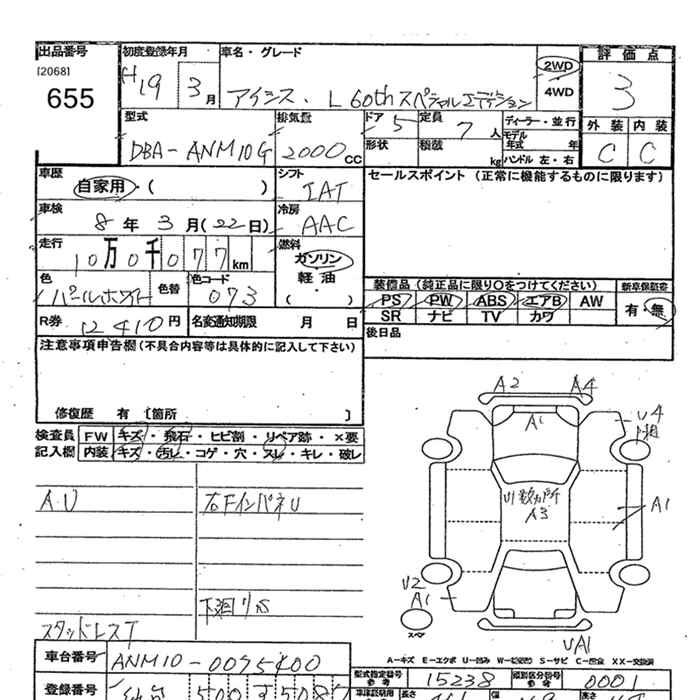 出品番号 初度登録年月 車名・グレード 評価点
[2068] 655
H19 3月 アイシス. L 60thスペシャルエディション 2WD 4WD 3
型式 排気量 ドア 5 定員 7人 ディーラー・並行 外装 内装
DBA-ANM10G 2000cc 形状 積載 kg モデル年式 年 ハンドル 左・右 C C
車歴 自家用・( ) シフト IAT セールスポイント (正常に機能するものに限ります)
車検 8年3月(22日) 冷房 AAC
走行 10万0千077km 燃料 ガソリン 軽油・( )
色 パールホワイト 色替 色コード 073
装備品(純正品に限り○をつけてください) 新車保証書
PS PW ABS エアB AW 有・無
SR ナビ TV カワ
R券 12410円 名変通知期限 月 日 後日品
注意事項申告欄(不具合内容等は具体的に記入して下さい)
修復歴 有 〔箇所 〕
検査員 FW キズ・飛石・ヒビ割・リペア跡・×要
記入欄 内装 キズ・汚レ・コゲ・穴・スレ・キレ・破レ
A2 A4
A1
U4
A1
A3
U2
A1
スペア
UA1
AU
右FインパネU
下廻りS
スタッドレスT
A-キズ E-エクボ U-凹み S-サビ C-腐食 XX-交換済
車台番号 ANM10-0075400
型式指定番号 参考 15238 類別区分番号 参考 0001
登録番号